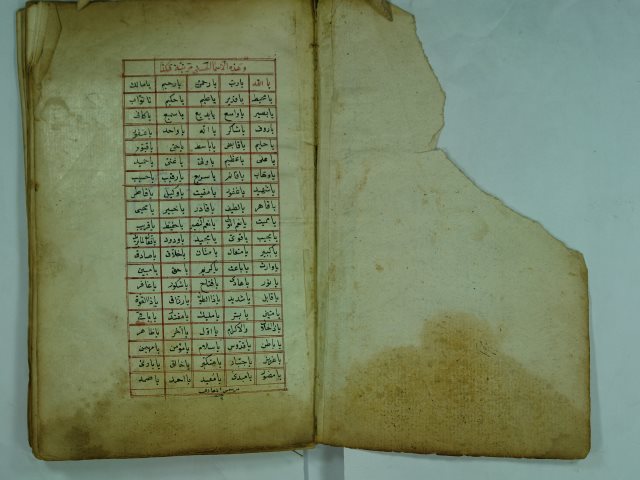 يا الله يا رب يا رحمن يا رحيم يا مالك
يا محيط يا قدير يا عليم يا حكيم يا تواب
يا بصير يا واسع يا بديع يا سميع يا كافى
يا رؤف يا شاكر يا اله يا واحد يا غفور
يا حليم يا قابض يا باسط يا حى يا قيوم
يا على يا عظيم يا ولى يا غنى يا حميد
يا وهاب يا قائم يا سريع يا رقيب يا حسيب
يا شهيد يا غفور يا مقيت يا وكيل يا فاطر
يا قاهر يا لطيف يا قادر يا خبير يا محيى
يا مميت يا نعم المولى يا نعم النصير يا حفيظ يا قريب
يا مجيب يا قوى يا مجيد يا ودود
يا كبير يا متعال يا منان يا خلاق يا صادق
يا وارث يا باعث يا كريم يا حق يا مبين
يا نور يا هادى يا فتاح يا شكور يا غافر
يا قابل يا شديد يا ذا الطول يا رزاق يا ذا القوة
يا متين يا بر يا مليك يا مقتدر يا باقى
يا ذا الجلال والاكرام يا اول يا آخر يا ظاهر
يا باطن يا قدوس يا سلام يا مؤمن يا مهيمن
يا عزيز يا جبار يا متكبر يا خالق يا بارئ
يا مصور يا مبدئ يا معيد يا احد يا صمد